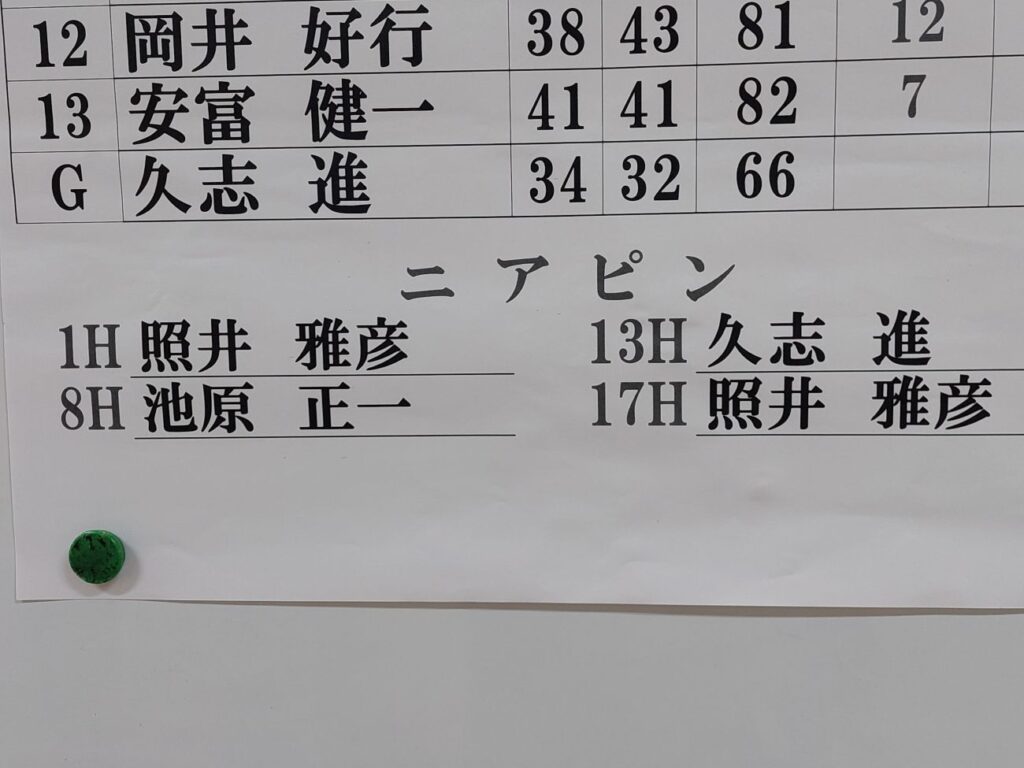 12 岡井 好行 38 43 81 12
13 安富 健一 41 41 82 7
G 久志 進 34 32 66
ニアピン
1H 照井 雅彦 13H 久志 進
8H 池原 正一 17H 照井 雅彦